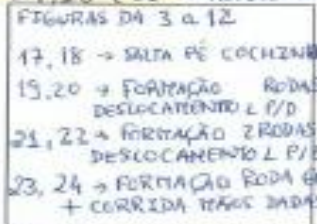 FIGURAS DA 3 a 12
17, 18 → SALTA PÉ COCHINH
19, 20 → FORMAÇÃO RODAS
DESLOCAMENTO L P/D
21, 22 → FORMAÇÃO 2 RODAS
DESLOCAMENTO L P/
23, 24 → FORMAÇÃO RODA
+ CORRIDA MÃOS DADAS